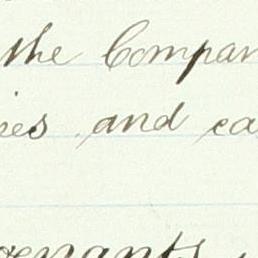 the Compan
ies and ca
enants